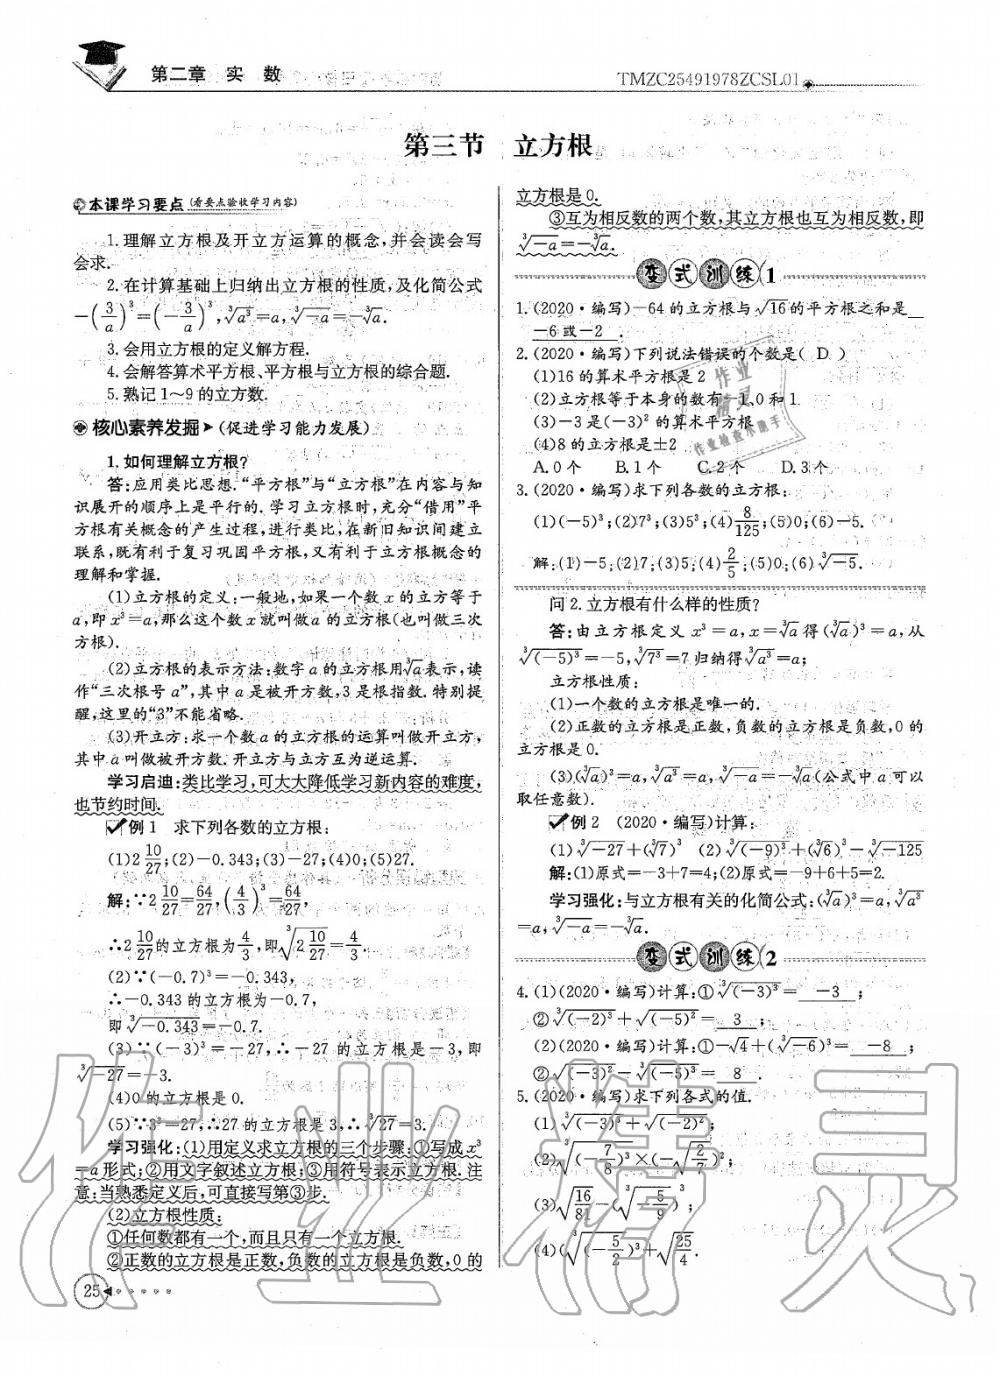 第二章 实 数
TMZC25491978ZCSL01
第三节 立方根
本课学习要点(看要点验收学习内容)
1.理解立方根及开立方运算的概念,并会读会写
会求.
2.在计算基础上归纳出立方根的性质,及化简公式
-(3/a)³=(-3/a)³,∛a³=a,∛-a=-∛a.
3.会用立方根的定义解方程.
4.会解答算术平方根、平方根与立方根的综合题.
5.熟记1~9的立方数.
核心素养发掘➤(促进学习能力发展)
1.如何理解立方根?
答:应用类比思想.“平方根”与“立方根”在内容与知
识展开的顺序上是平行的.学习立方根时,充分“借用”平
方根有关概念的产生过程,进行类比,在新旧知识间建立
联系,既有利于复习巩固平方根,又有利于立方根概念的
理解和掌握.
(1)立方根的定义:一般地,如果一个数x的立方等于
a,即x³=a,那么这个数x就叫做a的立方根(也叫做三次
方根).
(2)立方根的表示方法:数字a的立方根用∛a表示,读
作“三次根号a”,其中a是被开方数,3是根指数.特别提
醒,这里的“3”不能省略.
(3)开立方:求一个数a的立方根的运算叫做开立方,
其中a叫做被开方数.开立方与立方互为逆运算.
学习启迪:类比学习,可大大降低学习新内容的难度,
也节约时间.
例1 求下列各数的立方根:
(1)2 10/27;(2)-0.343;(3)-27;(4)0;(5)27.
解:∵2 10/27=64/27,(4/3)³=64/27,
∴2 10/27的立方根为4/3,即∛(2 10/27)=4/3.
(2)∵(-0.7)³=-0.343,
∴-0.343的立方根为-0.7,
即∛-0.343=-0.7.
(3)∵(-3)³=-27,∴-27的立方根是-3,即
∛-27=-3.
(4)0的立方根是0.
(5)∵3³=27,∴27的立方根是3,∛27=3.
学习强化:(1)用定义求立方根的三个步骤:①写成x³
=a形式;②用文字叙述立方根;③用符号表示立方根.注
意:当熟悉定义后,可直接写第③步.
(2)立方根性质:
①任何数都有一个,而且只有一个立方根.
②正数的立方根是正数,负数的立方根是负数,0的
25
立方根是0.
③互为相反数的两个数,其立方根也互为相反数,即
∛-a=-∛a.
变式训练1
1.(2020·编写)-64的立方根与√16的平方根之和是
-6或-2.
2.(2020·编写)下列说法错误的个数是( D )
(1)16的算术平方根是2
(2)立方根等于本身的数有-1、0和1
(3)-3是(-3)²的算术平方根
(4)8的立方根是±2
A.0个 B.1个 C.2个 D.3个
3.(2020·编写)求下列各数的立方根:
(1)(-5)³;(2)7³;(3)5³;(4)8/125;(5)0;(6)-5.
解:(1)-5;(2)7;(3)5;(4)2/5;(5)0;(6)∛-5.
问2.立方根有什么样的性质?
答:由立方根定义x³=a,x=∛a得(∛a)³=a,从
∛(-5)³=-5,∛7³=7归纳得∛a³=a;
立方根性质:
(1)一个数的立方根是唯一的.
(2)正数的立方根是正数,负数的立方根是负数,0的
立方根是0.
(3)(∛a)³=a,∛a³=a,∛-a=-∛a(公式中a可以
取任意数).
例2 (2020·编写)计算:
(1)∛-27+(∛7)³ (2)∛(-9)³+(∛6)³-∛-125
解:(1)原式=-3+7=4;(2)原式=-9+6+5=2.
学习强化:与立方根有关的化简公式:(∛a)³=a,∛a³
=a,∛-a=-∛a.
变式训练2
4.(1)(2020·编写)计算:①∛(-3)³= -3 ;
②∛(-2)³+√(-5)²= 3 ;
(2)(2020·编写)计算:①-√4+(∛-6)³= -8 ;
②∛(-3)³-∛(-5)³= 8 .
5.(2020·编写)求下列各式的值.
(1)∛(-3)³+√(-2)²;
(2)∛(-7/8)³×(-√(2/7)²;
(3)√16/81-(∛-5/9)³;
(4)(∛(-5/2)³+√25/4.
作业精灵
作业检查小助手
作业精灵